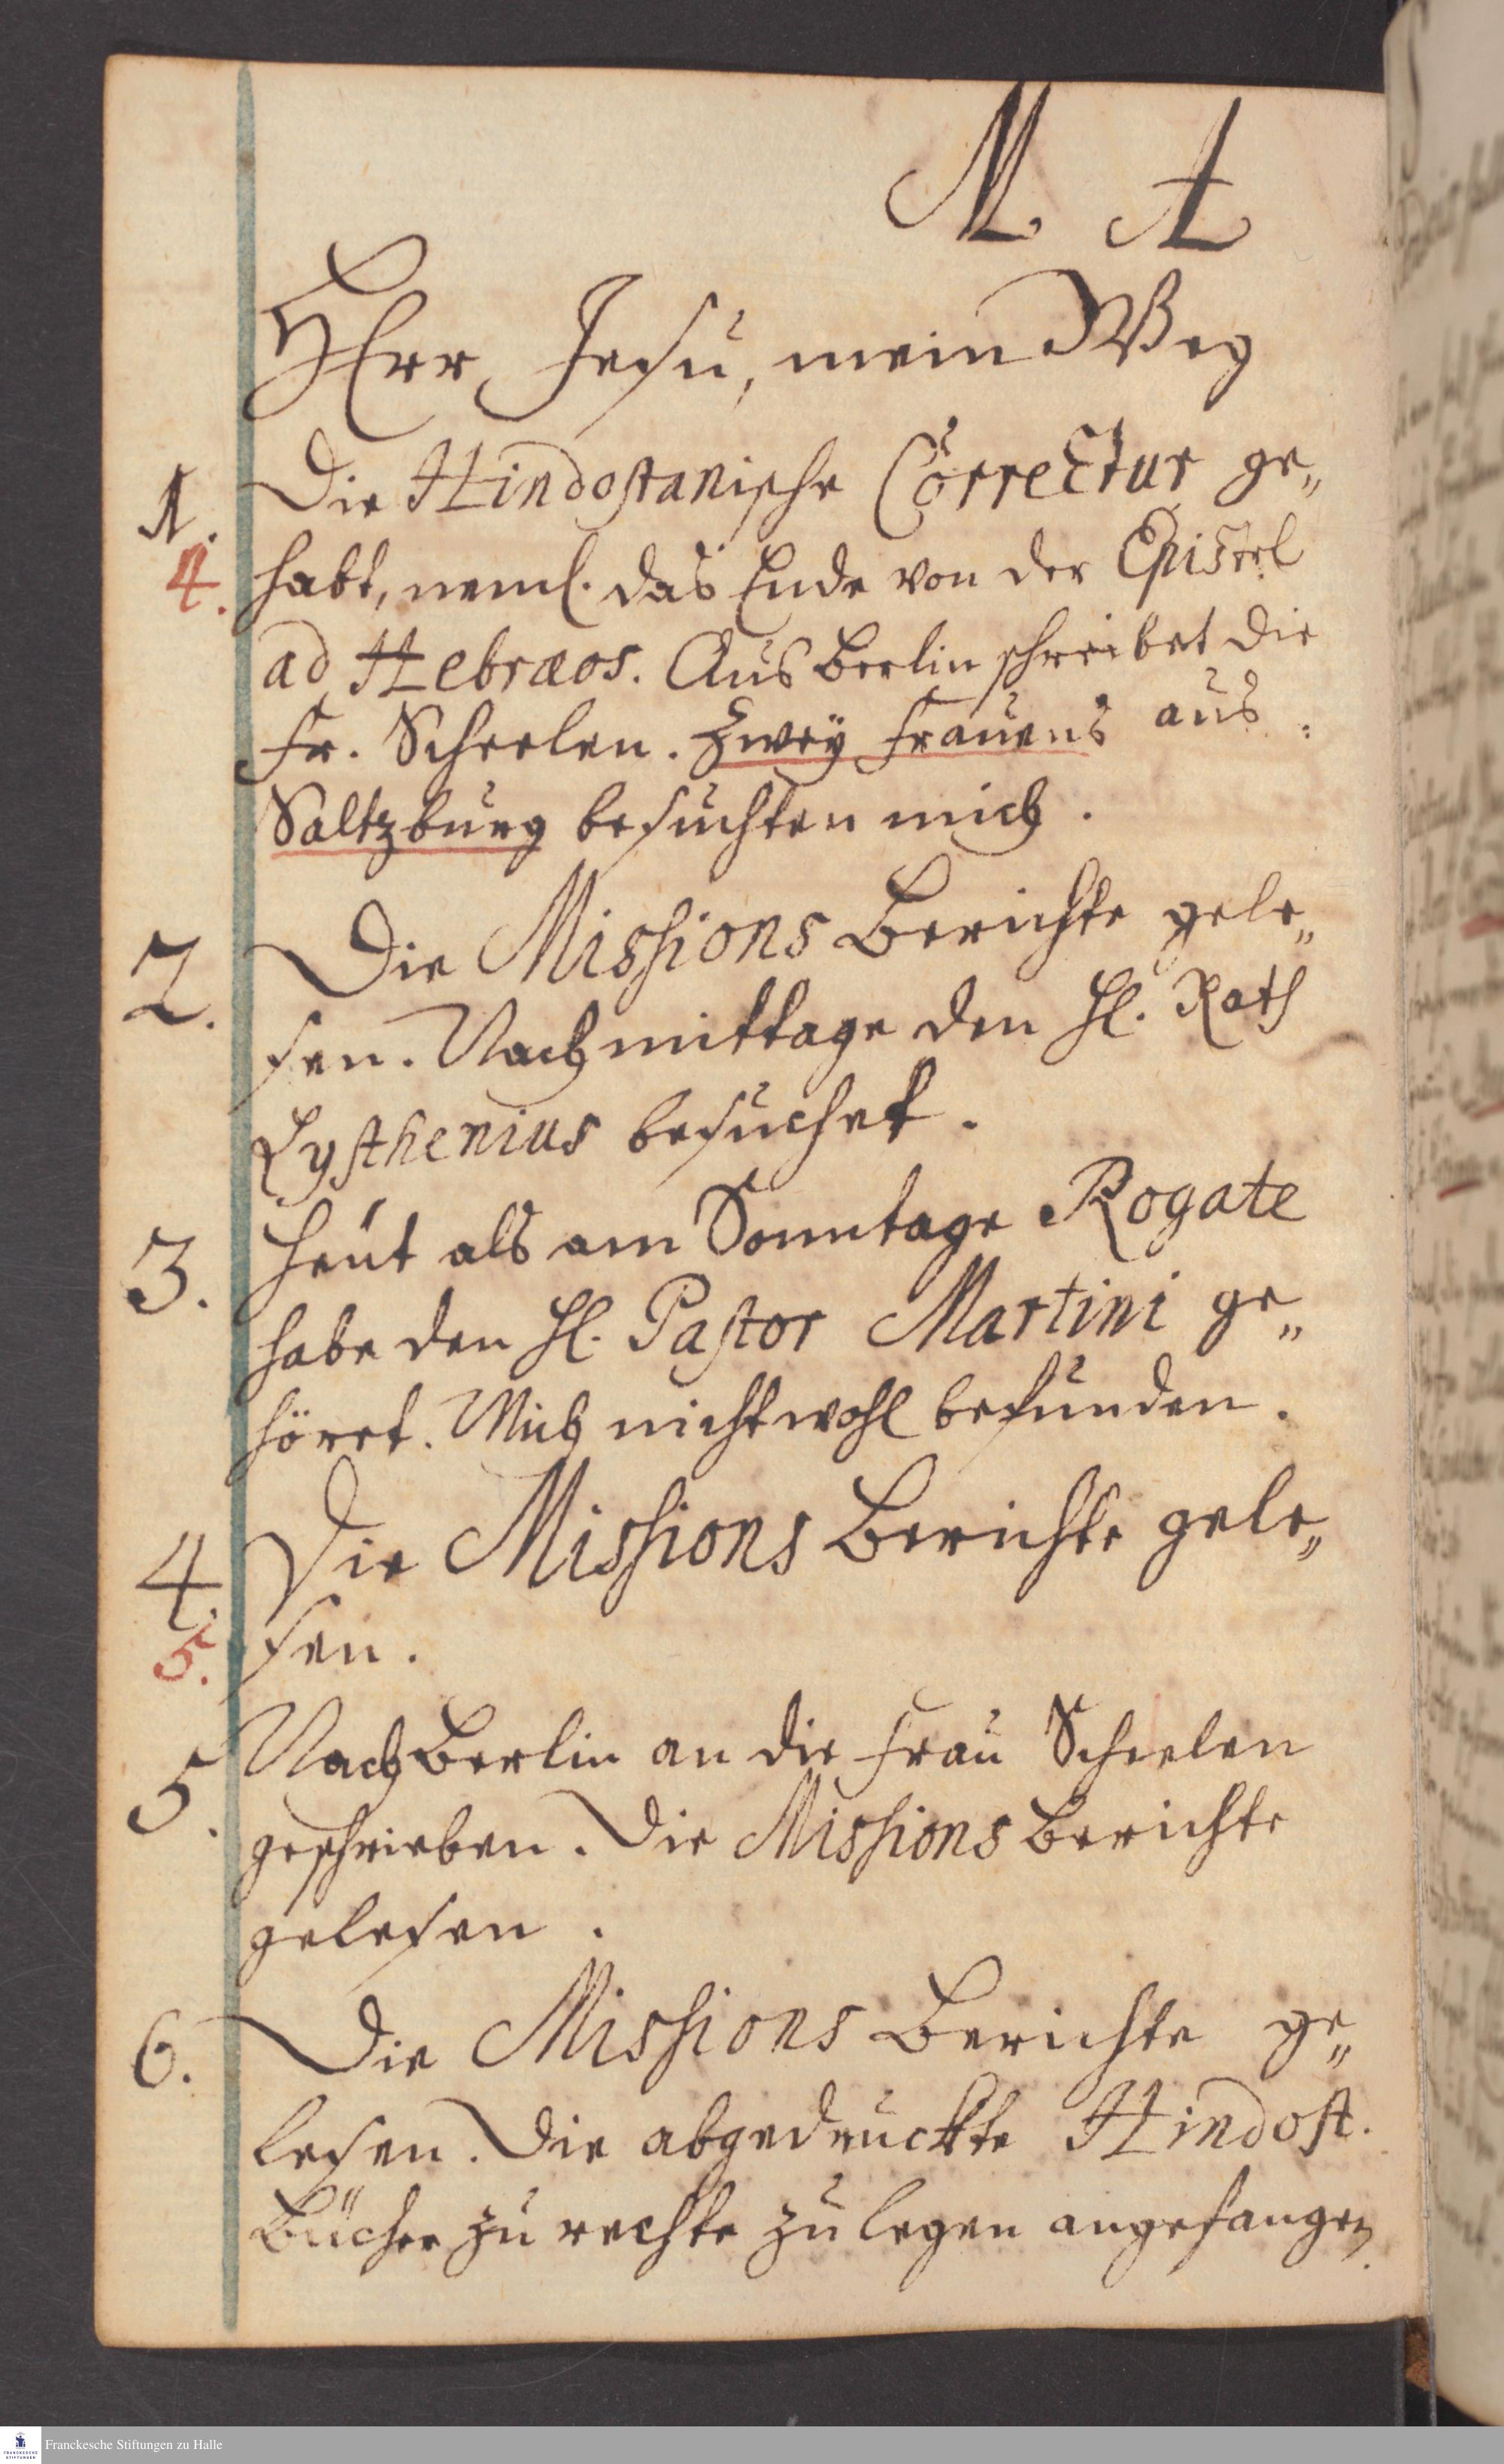 M A
HErr Jesu, mein Weg
1. Die Hindostanische Correctur ge„
4. habt, neml. das Ende von der Epistel
ad Hebræos. Aus Berlin schreibet die
Fr. Scheelen. Zwey Frauens aus
Saltzburg besuchten mich.
2. Die Missions Berichte gele„
sen. Nachmittage den H. Rath
Lysthenius besuchet.
3. Heut als am Sonntage Rogate
habe den H. Pastor Martini ge„
höret. Mich nicht wohl befunden.
4. Die Missions Berichte gele„
5. sen.
5. Nach Berlin an die Frau Scheelen
geschrieben. Die Missions Berichte
gelesen.
6. Die Missions Berichte ge„
lesen. Die abgedruckte Hindost.
Bücher zu rechte zu legen angefangen.
FRANCKESCHE STIFTUNGEN
Franckesche Stiftungen zu Halle